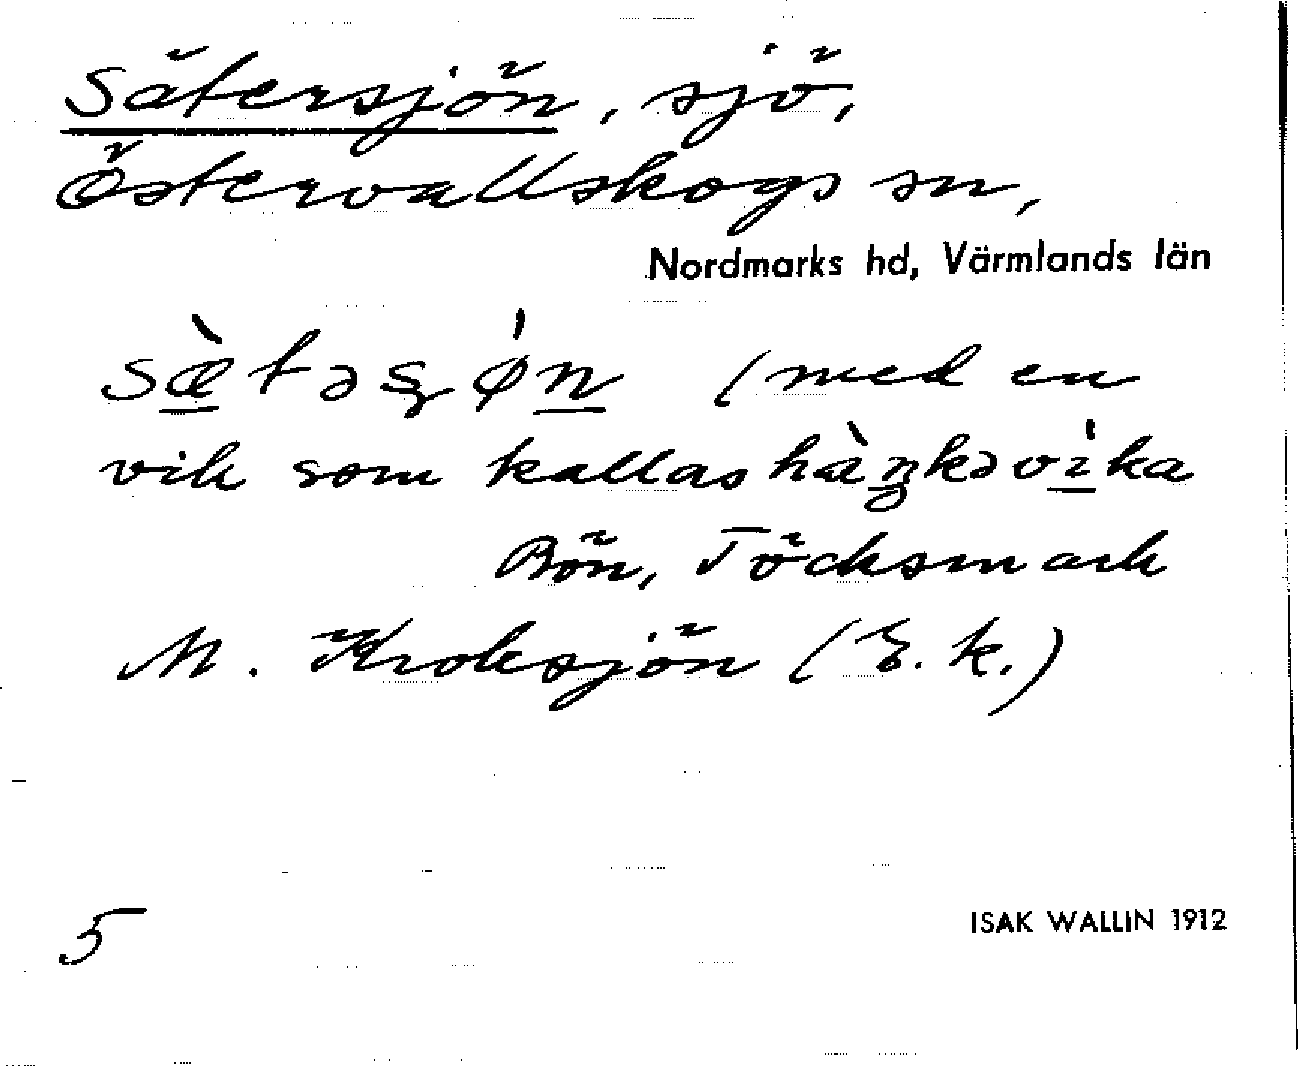 Sätersjön, sjö,
Östervallskogs sn,
Nordmarks hd, Värmlands län
sæ̀təʂǿn (med en
vik som kallas hàŋkəvíka
Bön, Töcksmark
M. Kroksjön (E.k.)
5
ISAK WALLIN 1912